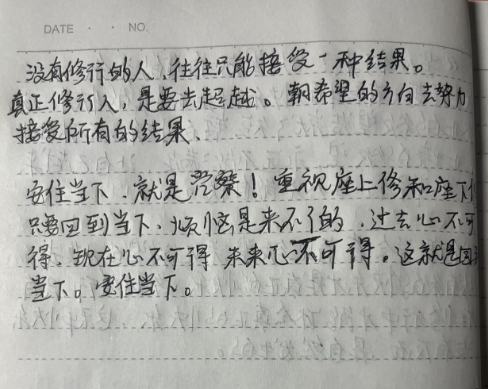 DATE · · NO.
没有修行的人，往往只能接受一种结果。
真正修行人，是要去超越。朝希望的方向去努力
接受所有的结果.
安住当下，就是答案！重视座上修和座下
只要回到当下，烦恼是来不了的，过去心不可
得，现在心不可得 未来心不可得。这就是回
当下。安住当下。